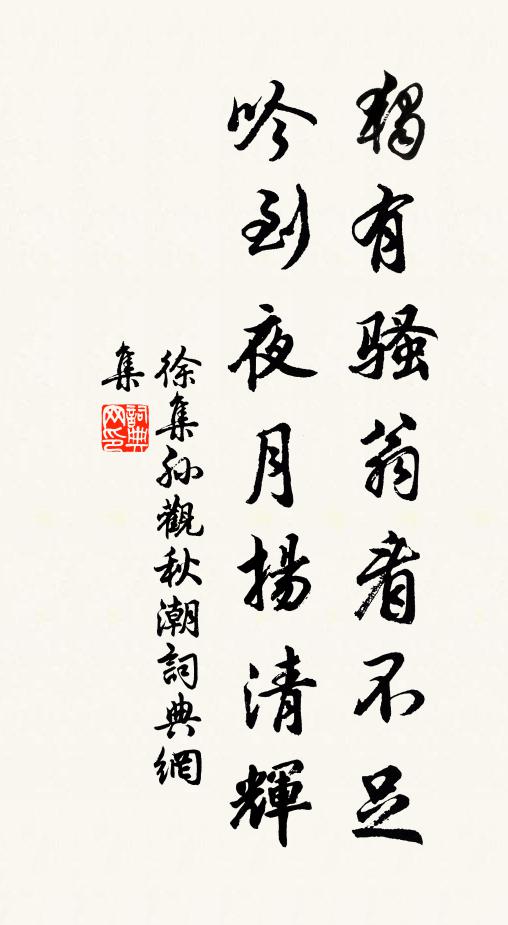 獨有騷翁看不足
吟到夜月揚清輝
徐集孫觀秋潮詞典網
集
詞典網印